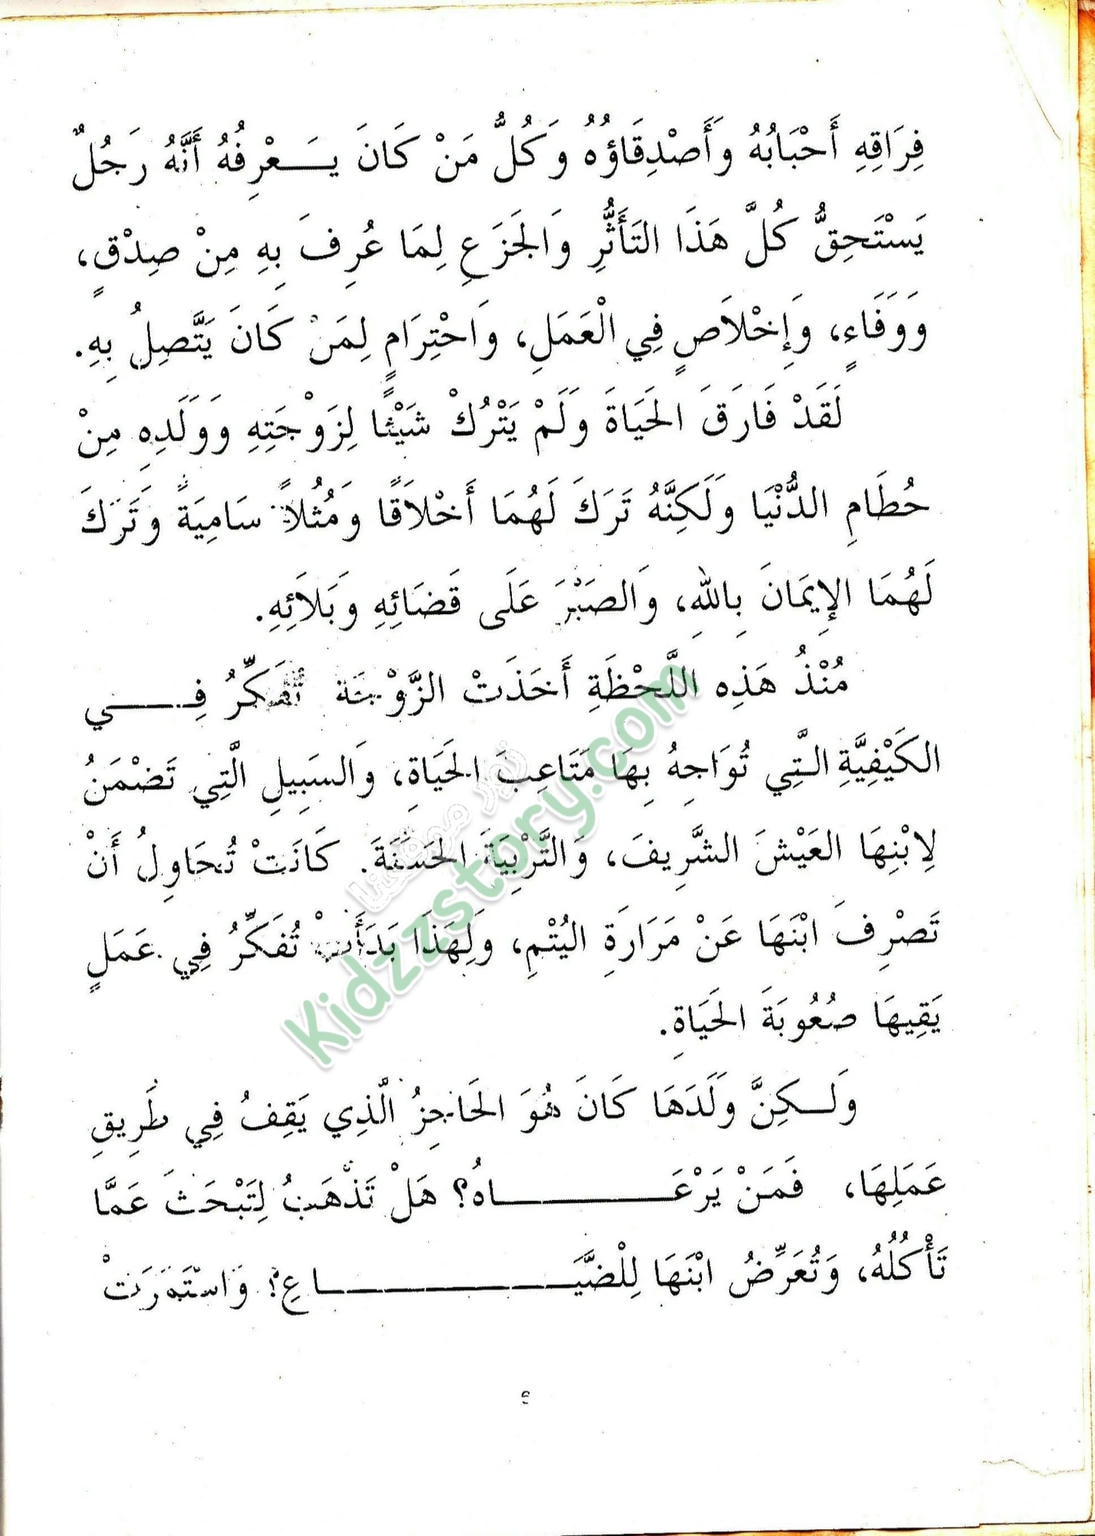 فِرَاقِهِ أَحْبَابُهُ وَأَصْدِقَاؤُهُ وَكُلُّ مَنْ كَانَ يَـــعْرِفُهُ أَنَّهُ رَجُلٌ
يَسْتَحِقُّ كُلَّ هَذَا التَأَثُّرِ وَالجَزَعِ لِمَا عُرِفَ بِهِ مِنْ صِدْقٍ،
وَوَفَاءٍ، وَإِخْلاَصٍ فِي الْعَمَلِ، وَاحْتِرَامٍ لِمَنْ كَانَ يَتَّصِلُ بِهِ.
لَقَدْ فَارَقَ الحَيَاةَ وَلَمْ يَتْرُكْ شَيْئًا لِزَوْجَتِهِ وَوَلَدِهِ مِنْ
حُطَامِ الدُّنْيَا وَلَكِنَّهُ تَرَكَ لَهُمَا أَخْلاَقًا وَمُثُلاً سَامِيَةً وَتَرَكَ
لَهُمَا الإِيمَانَ بِاللهِ، وَالصَبْرَ عَلَى قَضَائِهِ وَبَلاَئِهِ.
مُنْذُ هَذِهِ اللَّحْظَةِ أَخَذَتْ الزَّوْجَة تُفَكِّرُ فِــــي
الكَيْفِيَّةِ الَّتِي تُوَاجِهُ بِهَا مَتَاعِبَ الحَيَاةِ، وَالسَبِيلِ الَّتِي تَضْمَنُ
لِابْنِهَا العَيْشَ الشَّرِيفَ، وَالتَّرْبِيَةَ الحَسَنَةَ. كَانَتْ تُحَاوِلُ أَنْ
تَصْرِفَ ابْنَهَا عَنْ مَرَارَةِ اليُتْمِ، وَلِهَذَا بَدَأَتْ تُفَكِّرُ فِي عَمَلٍ
يَقِيهَا صُعُوبَةَ الحَيَاةِ.
وَلَــكِنَّ وَلَدَهَا كَانَ هُوَ الحَاجِزُ الَّذِي يَقِفُ فِي طَرِيقِ
عَمَلِهَا، فَمَنْ يَرْعَـــــــــاهُ؟ هَلْ تَذْهَبُ لِتَبْحَثَ عَمَّا
تَأْكُلُهُ، وَتُعَرِّضُ ابْنَهَا لِلْضَّيَـــــــــاعِ؟ وَاسْتَمَرَتْ
زوروا موقعنا
Kidzzstory.com